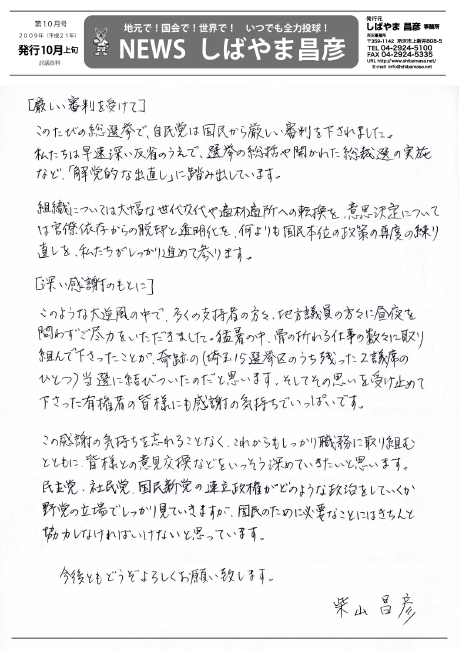 第10号
2009年（平成21年）
発行10月上旬
討議資料
地元で！国会で！世界で！　いつでも全力投球！
NEWS しばやま昌彦
発行元
しばやま 昌彦 事務所
所沢事務所
〒359-1142　所沢市上新井808-5
TEL 04-2924-5100
FAX 04-2924-5335
URL http://www.shibamasa.net/
E-mail info@shibamasa.net
[厳しい審判を受けて]
このたびの総選挙で、自民党は国民から厳しい審判を下されました。
私たちは早速深い反省のうえで、選挙の総括や開かれた総裁選の実施
など、「解党的な出直し」に踏み出しています。
組織については大幅な世代交代や適材適所への転換を、意思決定については
官僚依存からの脱却と透明化を、何よりも国民本位の政策の再度の練り
直しを、私たちがしっかり進めて参ります。
[深い感謝のもとに]
このような大逆風の中で、多くの支持者の方々、地方議員の方々に昼夜を
問わずご尽力をいただきました。猛暑の中、骨の折れる仕事の数々に取り
組んで下さったことが、奇跡の(埼玉15選挙区のうち残った2議席の
ひとつ)当選に結びついたのだと思います。そしてその思いを受け止めて
下さった有権者の皆様にも感謝の気持ちでいっぱいです。
この感謝の気持ちを忘れることなく、これからもしっかり職務に取り組む
とともに、皆様との意見交換などをいっそう深めていきたいと思います。
民主党、社民党、国民新党の連立政権がどのような政治をしていくか
野党の立場でしっかり見ていきますが、国民のために必要なことにはきちんと
協力しなければいけないと思っています。
今後ともどうぞよろしくお願い致します。
柴山昌彦